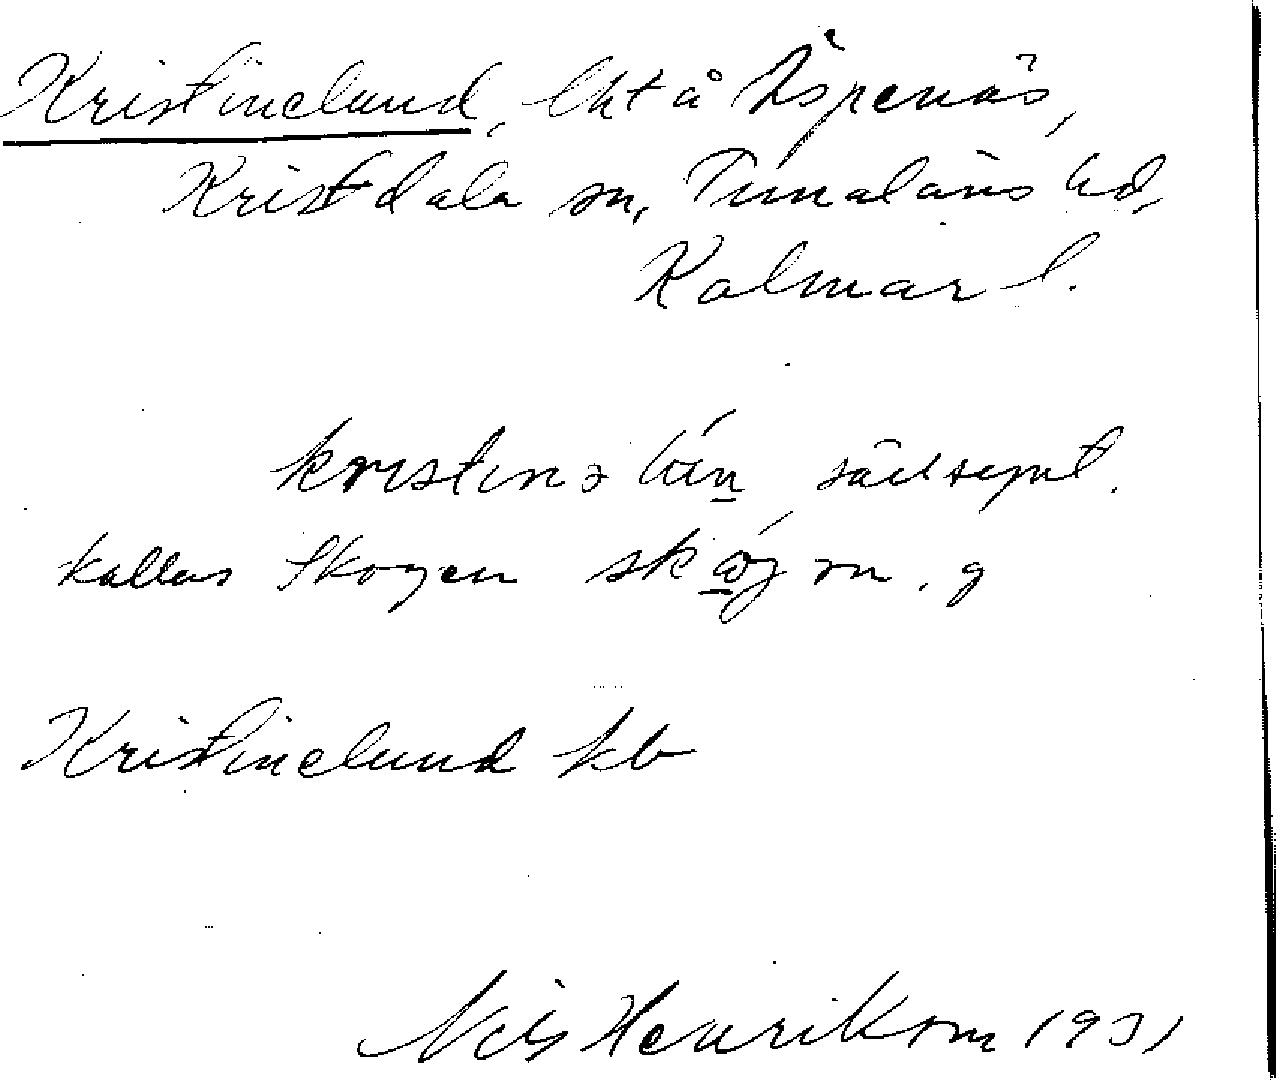 Kristinelund, lht å Äspenäs,
Kristdala sn, Tunaläns hd,
Kalmar l.
kristinə
kallas Skogen
Kristinelund kb
Nils Henrikson 1931